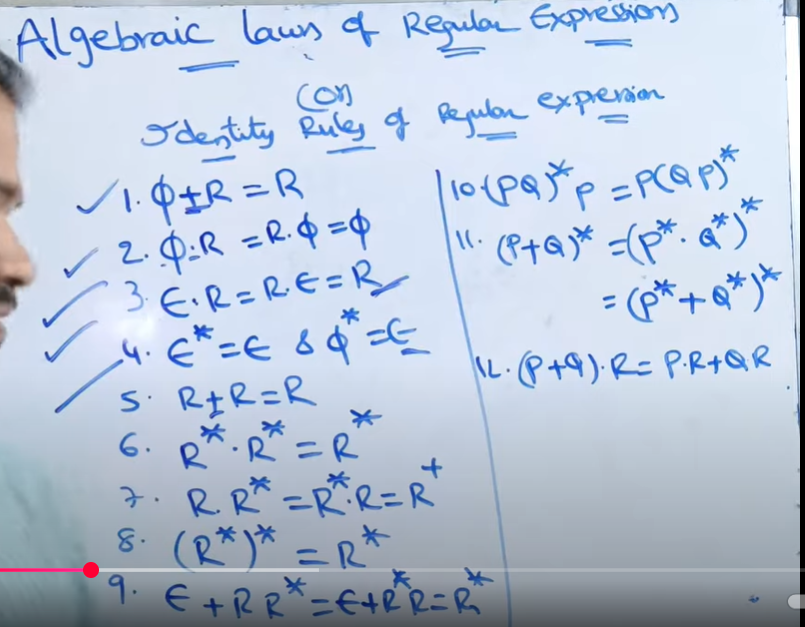 Algebraic laws of Regular Expressions
(or)
Identity Rules of Regular expression
1. ϕ+R = R
2. ϕ.R = R.ϕ = ϕ
3. ϵ.R = R.ϵ = R
4. ϵ* = ϵ & ϕ* = ϵ
5. R+R = R
6. R*.R* = R*
7. R.R* = R*.R = R+
8. (R*)* = R*
9. ϵ+RR* = ϵ+R*R = R*
10. (PQ)*P = P(QP)*
11. (P+Q)* = (P*.Q*)*
= (P*+Q*)*
12. (P+Q).R = P.R+QR